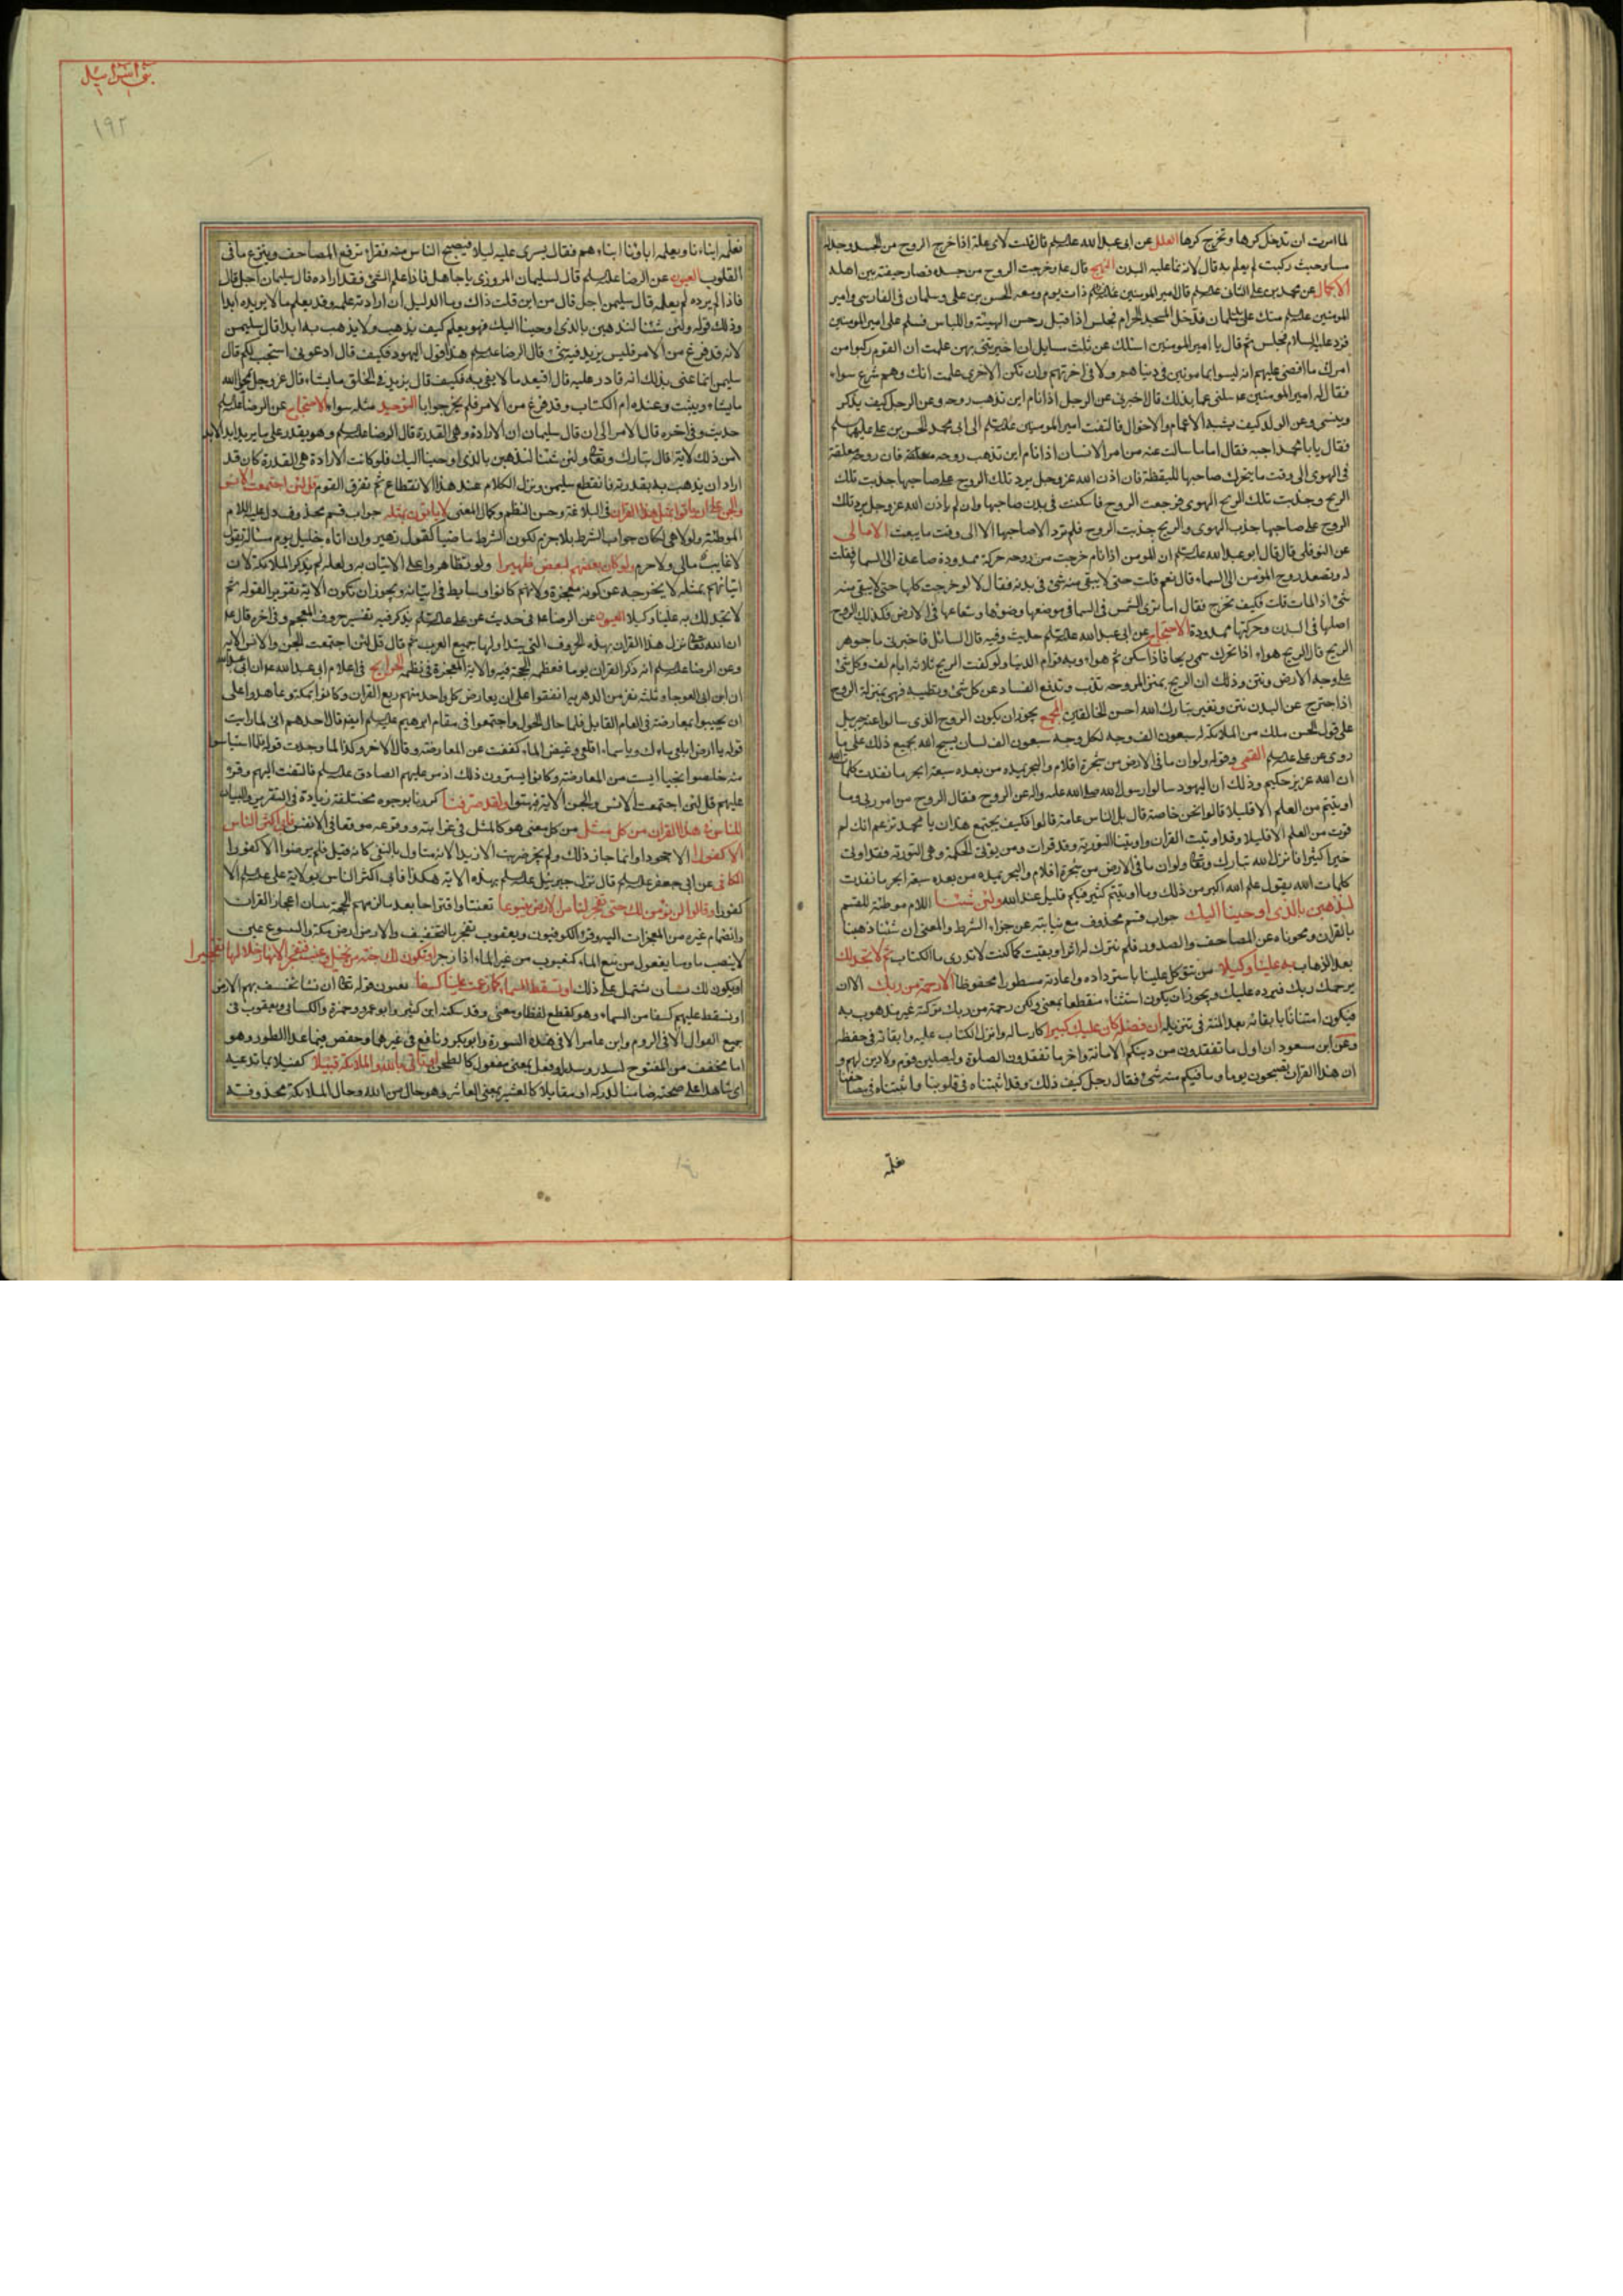 لما امرت ان تدخل كرها وتخرج كرها العلل عن ابى عبد الله عليه السلم قال قلت لاى علة اذا خرج الروح من الجسد وجد له
مسا وحيث ركبت لم يعلم به قال لانه نما عليه البدن النهج قال ع وخرجت الروح من جسده فصار جيفة بين اهله
الاكمال عن محمد بن على الثانى عليه السلم قال اقبل امير المومنين عليه السلم ذات يوم ومعه الحسن بن على وسلمان الفارسى وامير
المومنين عليه السلم متك على يد سلمان فدخل المسجد الحرام فجلس اذا قبل رجل حسن الهيئة واللباس فسلم على امير المومنين
فرد عليه السلام فجلس ثم قال يا امير المومنين اسئلك عن ثلث مسايل ان اخبرتنى بهن علمت ان القوم ركبوا من
امرك ما اقضى عليهم انه ليسوا بمامونين فى دنياهم ولا فى اخرتهم وان تكن الاخرى علمت انك وهم شرع سواء
فقال له امير المومنين ع سلنى عما بدا لك قال اخبرنى عن الرجل اذا نام اين تذهب روحه وعن الرجل كيف يذكر
وينسى وعن الولد كيف يشبه الاعمام والاخوال فالتفت امير المومنين عليه السلم الى ابى محمد الحسن بن على عليهما السلم
فقال يا با محمد اجبه فقال اما ما سالت عنه من امر الانسان اذا نام اين تذهب روحه فان روحه معلقة
فى الهوى الى وقت ما يتحرك صاحبها لليقظة فان اذن الله عز وجل برد تلك الروح على صاحبها جذبت تلك
الريح وجذبت تلك الريح الهوى فرجعت الروح فاسكنت فى بدن صاحبها وان لم ياذن الله عز وجل برد تلك
الروح على صاحبها جذب الهوى والريح جذبت الروح فلم ترد الا صاحبها الا الى وقت ما يبعث الامالى
عن النوفلى قال قال ابو عبد الله عليه السلم ان المومن اذا نام خرجت من روحه حركة ممدودة صاعدة الى السما فقلت
له وتصعد روح المؤمن الى السماء قال نعم قلت حتى لا يبقى منه شئ فى بدنه فقال لا لو خرجت كلها حتى لا يبقى منه
شئ اذا لمات قلت فكيف تخرج فقال اما ترى الشمس فى السما فى موضعها وضوئها وشعاعها فى الارض فكذلك الروح
اصلها فى البدن وحركتها ممدودة الاحتجاج عن ابى عبد الله عليه السلم حديث وفيه قال السائل فاخبرنى ما جوهر
الريح قال الريح هواء اذا تحرك سمى ريحا فاذا سكن سمى هواء وبه قوام الدنيا ولو كفت الريح ثلاثة ايام لفسد كل شئ
على وجه الارض ونتن وذلك ان الريح بمنزلة المروحه تذب وتدفع الفساد عن كل شئ وتطيبه فهى بمنزلة الروح
اذا خرج عن البدن نتن وتغير تبارك الله احسن الخالقين المجمع يجوز ان يكون الروح الذى سالوا عنه جبريل
على قول الحسن ملك من الملائكة له سبعون الف وجه لكل وجه سبعون الف لسان يسبح الله بجميع ذلك على ما
روى عن على عليه السلم القمى وقوله ولو ان ما فى الارض من شجرة اقلام والبحر يمده من بعده سبعة ابحر ما نفدت كلمات الله
ان الله عزيز حكيم وذلك ان اليهود سالوا رسول الله صلى الله عليه واله عن الروح فقال الروح من امر ربى وما
اوتيتم من العلم الا قليلا قالوا نحن خاصة قال بل الناس عامة قالوا فكيف يجتمع هذان يا محمد تزعم انك لم
توت من العلم الا قليلا وقد اوتيت القران واوتينا التورية وقد قرات ومن يؤتى الحكمة وهى التورية فقد اوتى
خيرا كثيرا فانزل الله تبارك وتعالى ولو ان ما فى الارض من شجرة اقلام والبحر يمده من بعده سبعة ابحر ما نفدت
كلمات الله يقول علم الله اكبر من ذلك وما اوتيتم كثير فيكم قليل عند الله ولئن شئنا اللام موطئة للقسم
لنذهبن بالذى اوحينا اليك جواب قسم محذوف مع نيابته عن جزاء الشرط والمعنى ان شئنا ذهبنا
بالقران ومحوناه عن المصاحف والصدور فلم نترك له اثرا وبقيت كما كنت لا تدرى ما الكتاب ثم لا تجد لك
بعد الذهاب به علينا وكيلا من يتوكل علينا باسترداده واعادته مسطورا محفوظا الا رحمة من ربك الا ان
يرحمك ربك فيرده عليك ويجوز ان يكون استثناء منقطعا بمعنى ولكن رحمة من ربك تركته غير مذهوب به
فيكون امتنانا بابقائه بعد المنة فى تنزيله ان فضله كان عليك كبيرا كارساله وانزل الكتاب عليه وابقائه فى حفظه
وعن ابن مسعود ان اول ما تفقدون من دينكم الامانة واخر ما تفقدون الصلوة وليصلين قوم ولا دين لهم و
ان هذا القران تصبحون يوما وما فيكم منه شئ فقال رجل كيف ذلك وقد اثبتناه فى قلوبنا واثبتناه فى مصاحفنا
نعلمه
بنى اسرائيل
١٩٢
نعلمه ابناءنا ويعلمه ابناونا ابناءهم فقال يسرى عليه ليلا فيصبح الناس منه فقراء ترفع المصاحف وينزع ما فى
القلوب العيون عن الرضا عليه السلم قال لسليمان المروزى يا جاهل فاذا علم الشئ فقد اراده قال سليمان اجل قال
فاذا لم يرده لم يعلمه قال سليمن اجل قال من اين قلت ذلك وما الدليل ان ارادته علمه وقد يعلم ما لا يريده ابدا
وذلك قوله ولئن شئنا لنذهبن بالذى اوحينا اليك فهو يعلم كيف يذهب ولا يذهب به ابدا قال سليمن
لانه قد فرغ من الامر فليس يزيد فيه شئ قال الرضا عليه السلم هذا قول اليهود فكيف قال ادعونى استجب لكم قال
سليمن انما عنى بذلك انه قادر عليه قال افيعد ما لا يفى به فكيف قال يزيد فى الخلق ما يشاء وقال عز وجل يمحو الله
ما يشاء ويثبت وعنده ام الكتاب وقد فرغ من الامر فلم يحر جوابا التوحيد مثله سواء الاحتجاج عن الرضا عليه السلم
حديث وفى اخره قال الامر الى ان قال سليمان ان الارادة وهى القدرة قال الرضا عليه السلم وهو يقدر على ما لا يريد ابدا لابد
من ذلك لانه قال تبارك وتعالى ولئن شئنا لنذهبن بالذى اوحينا اليك فلو كانت الارادة هى القدرة كان قد
اراد ان يذهب به بقدرته فانقطع سليمن وترك الكلام عند هذا الانقطاع ثم تفرق القوم قل لئن اجتمعت الانس
والجن على ان ياتوا بمثل هذا القران فى البلاغة وحسن النظم وكمال المعنى لا ياتون بمثله جواب قسم محذوف دل عليه اللام
الموطئة ولولا هى لكان جواب الشرط بلا جزم لكون الشرط ماضيا كقول زهير وان اتاه خليل يوم مسئلة يقول
لا غايب مالى ولا حرم ولو كان بعضهم لبعض ظهيرا ولو تظاهروا على الاتيان به ولعله لم يذكر الملائكة لان
اتيانهم بمثله لا يخرجه عن كونه معجزة ولانهم كانوا وسايط فى اتيانه ويجوز ان تكون الاية تقريرا لقوله ثم
لا تجد لك به علينا وكيلا العيون عن الرضا ع فى حديث عن على عليه السلم يذكر فيه تفسير حروف المعجم وفى اخره قال ع
ان الله تعالى نزل هذا القران بهذه الحروف التى يتداولها جميع العرب ثم قال قل لئن اجتمعت الجن والانس الاية
وعن الرضا عليه السلم انه ذكر القران يوما فعظم الحجة فيه والاية المعجزة فى نظمه الخرايج فى اعلام ابى عبد الله ع
ان ابن ابى العوجا وثلثة نفر من الدهرية اتفقوا على ان يعارض كل واحد منهم ربع القران وكانوا بمكة وعاهدوا على
ان يجيبوا بمعارضته فى العام القابل فلما حال الحول واجتمعوا فى مقام ابرهيم عليه السلم ايضا قال احدهم انى لما رايت
قوله يا ارض ابلعى ماءك ويا سماء اقلعى وغيض الماء كففت عن المعارضة وقال الاخر وكذا لما وجدت قوله فلما استياسوا
منه خلصوا نجيا ايست من المعارضة وكانوا يسترون ذلك اذ مر عليهم الصادق عليه السلم فالتفت اليهم وقرء
عليهم قل لئن اجتمعت الانس والجن الاية فبهتوا ولقد صرفنا كررنا بوجوه مختلفة زيادة فى التقرير والبيان
للناس فى هذا القران من كل مثل من كل معنى هو كالمثل فى غرابته ووقوعه موقعا فى الانفس فابى اكثر الناس
الا كفورا الا جحودا وانما جاز ذلك ولم يجز ضربت الا زيدا لانه متاول بالنفى كانه قيل فلم يرضوا الا كفورا
الكافى عن ابى جعفر عليه السلم قال نزل جبرئيل عليه السلم بهذه الاية هكذا فابى اكثر الناس بولاية على عليه السلم الا
كفورا وقالوا لن نؤمن لك حتى تفجر لنا من الارض ينبوعا تعنتا واقتراحا بعد ما لزمهم الحجة ببيان اعجاز القران
وانضمام غيره من المعجزات اليه وقرء الكوفيون ويعقوب تفجر بالتخفيف والارض ارض مكة والينبوع عين
لا ينضب ماوها يفعول من نبع الماء كيعبوب من عب الماء اذا زخر او تكون لك جنة من نخيل وعنب فتفجر الانهار خلالها تفجيرا
او يكون لك بستان يشتمل على ذلك او تسقط السماء كما زعمت علينا كسفا يعنون قوله تعالى ان نشا نخسف بهم الارض
او نسقط عليهم كسفا من السماء وهو كقطع لفظا ومعنى وقد سكنه ابن كثير وابو عمرو وحمزة والكسائى ويعقوب فى
جميع القران الا فى الروم وابن عامر الا فى هذه السورة وابو بكر ونافع فى غيرهما وحفص فيما عدا الطور وهو
اما مخفف من المفتوح كسدر وسدر او فعل بمعنى مفعول كالطحن او تاتى بالله والملائكة قبيلا كفيلا بما تدعيه
اى شاهدا على صحته ضامنا لدركه او مقابلا كالعشير بمعنى المعاشر وهو حال من الله وحال الملائكة محذوفة